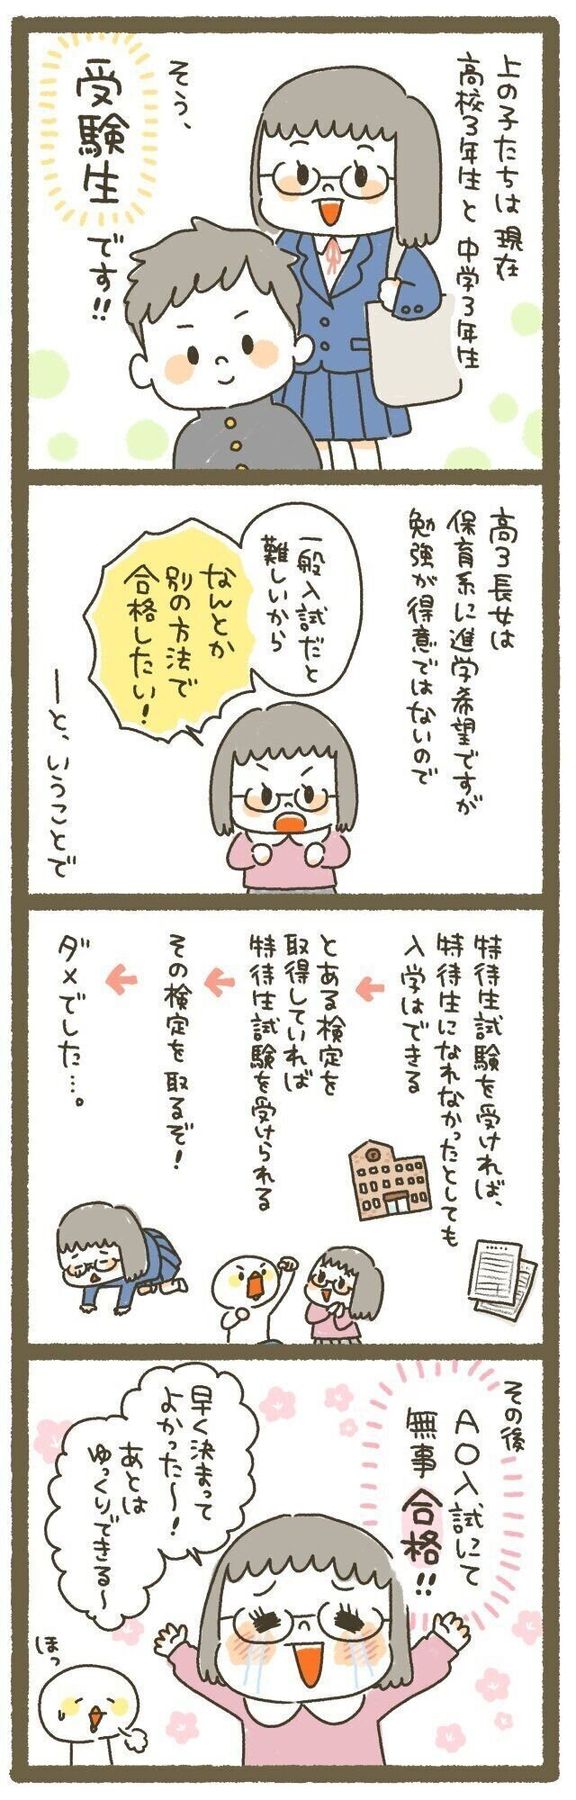 上の子たちは現在
高校3年生と中学3年生
そう、
受験生
です!!
高3長女は
保育系に進学希望ですが
勉強が得意ではないので
一般入試だと
難しいから
なんとか
別の方法で
合格したい!
ーと、いうことで
特待生試験を受ければ、
特待生になれなかったとしても
入学はできる
とある検定を
取得していれば
特待生試験を受けられる
その検定を取るぞ!
ダメでした…。
その後
AO入試にて
無事合格!!
早く決まって
よかった〜!
あとは
ゆっくりできる〜
ほっ